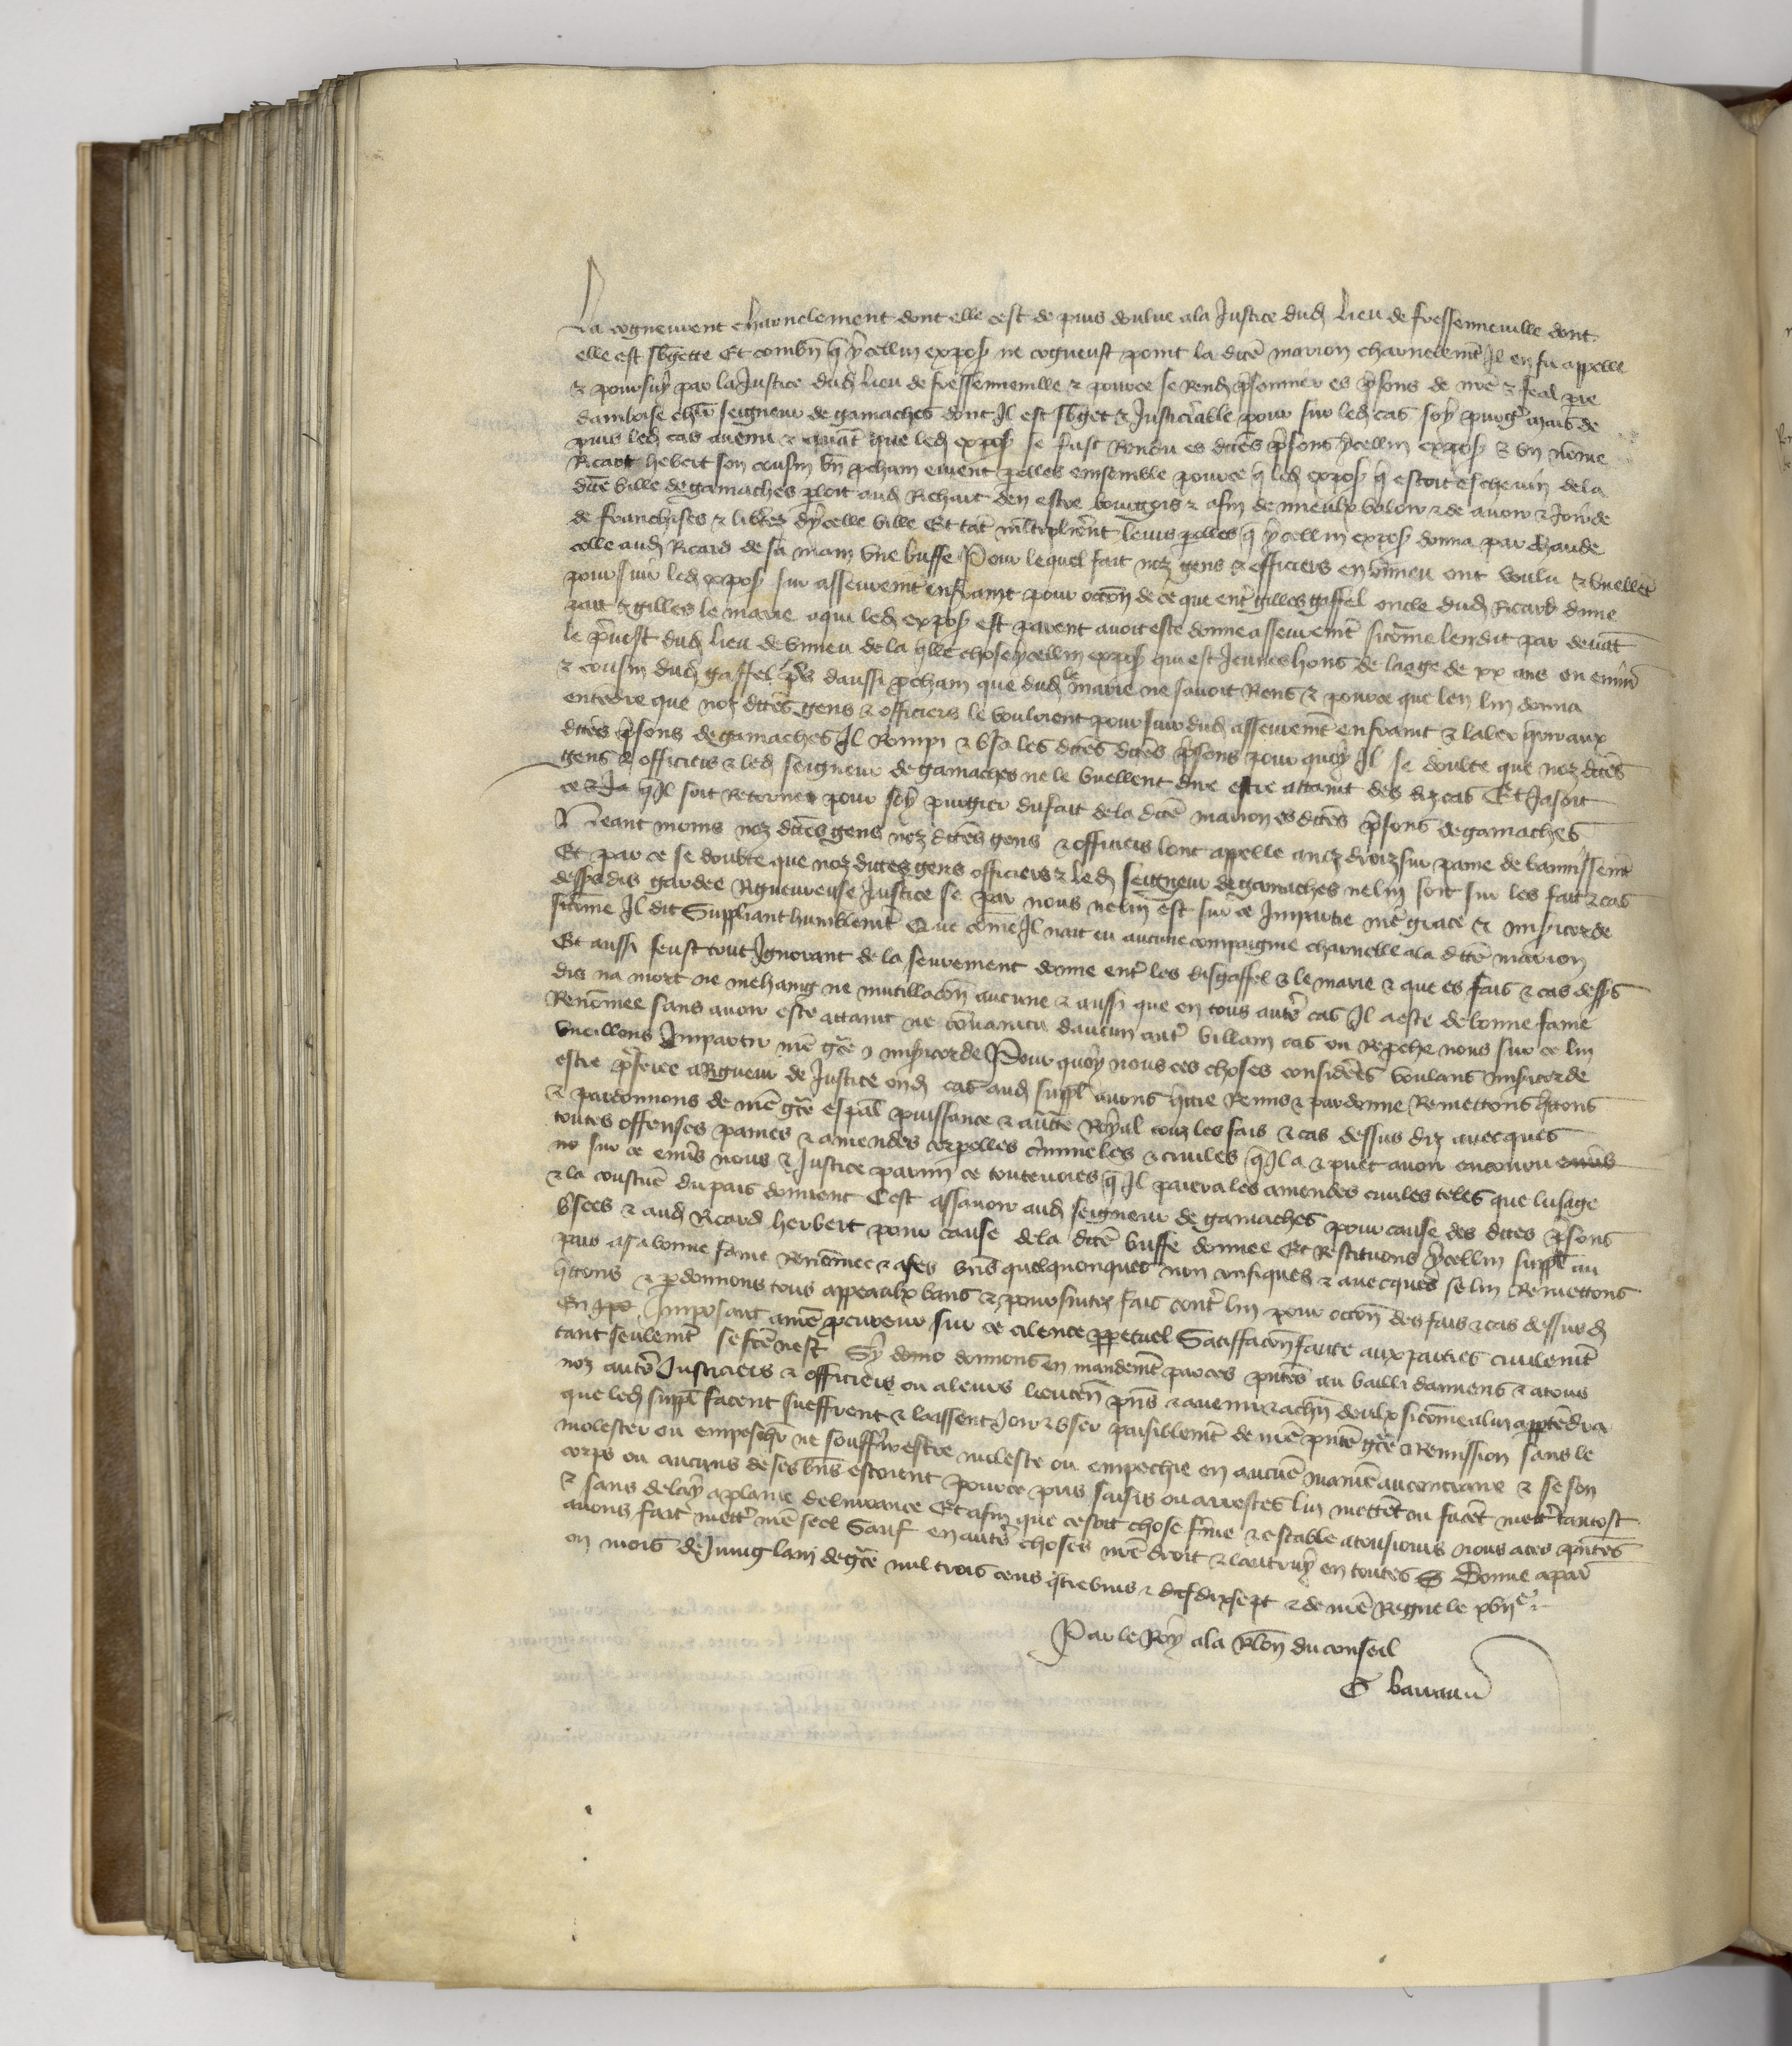 La cogneurent charnelement dont elle cest de puis doulue a la Justice dud lieu de fressenneuille dont
elle est sbgette Et combn q ycellui expos ne cogneust point la dicte marion charnelemt Il en fu appelle
& poursuy par la Justice dud lieu de fressenneuille & pource se Rend psonnier es psons de nre & feal pre
damboise chlr seigneur de gamaches dont Il est sbget & Justiciable pour sur led cas soy purgr mais de
puis led cas auenu & auat que led expos se fust Rendu es dictes psons ycellui expos & vn nome
Ricart hebert son cousin bn pchain eurent polles ensemble pource q led expos q estoit escheuin dela
dicte ville de gamaches ploit aud Richart den estre bourgois & afin de mieulx valoir & de auoir & Joir de
de franchises & libtez dycelle ville Et tat mltiplierent leurs polles q ycellui expos donna par chaude
colle aud Ricard de sa main vne buffe Pour lequel fait noz gens & officiers en vimeu ont voulu & vuellet
poursuir led expos sur asseuremt enfraint pour occon de ce que entr gilles gaffel oncle dud Ricard dune
part & gilles le marie a qui led expos est parent auoit este donne asseuremt sicome len dit par deuat
le preuost dud lieu de vimeu de la qlle chose ycellui expos qui est Jeunes homs de laage de xx ans ou enuiro
& cousin dud gaffel ps daussi pchain que dud le marie ne sauoit Rens & pource que len lui donna
entedre que noz dictes gens & officiers le vouloient poursuir dud asseuremt enfraint & laler querir aux
dictes psons de gamaches Il Rompi & brisa les dictes dictes psons pour quoy Il se doubte que noz dictes
gens & officiers & led seigneur de gamaches ne le vuellent dire estre attaint des diz cas Et Jasoit
ce & Ja quil soit Retorne pour soy purgier du fait dela dicte marion es dictes psons de gamaches
Neant moins noz dictes gens noz dictes gens & officiers lont appelle aux droiz sur paine de bannissemt
Et par ce se doubte que noz dictes gens officiers & led seigneur de gamaches ne lui soit sur les fait & cas
dessusdis gardee Rigueureuse Justice se par nous ne lui est sur ce Impartie nre grace & misicorde
sicome Il dit Suppliant humblemt Que come Il nait eu aucune compaignie charnelle a la dicte marion
Et aussi feust tout Ignorant de la seurement donne entr les dis gaffel & le marie & que es fais & cas dess
dis na mort ne mehaing ne mutillacon aucune & aussi que en tous autrs cas Il a este de bonne fame
Renomee sans auoir este attaint ne conuaincu daucun autr villain cas ou Repche nous sur ce lui
vueillons Impartir nre gce & misicorde Pour quoy nous ces choses considerees voulans misicorde
estre pferee a Rigueur de Justice oud cas aud suppl auons qittie Remis & pardonne Remettons qittons
& pardonnons de nre gce espal puissance & aucte Royal touz les fais & cas dessus diz auecques
toutes offenses paines & amendes corpelles criminelles & ciuiles quil a & puet auoir encouru enuers
no sur ce enuers nous & Justice parmi ce touteuoies quil paiera les amendes ciuiles teles que lusage
& la coustume du pais donnent Cest assauoir aud seigneur de gamaches pour cause des dictes psons
brisees & aud Ricard herbert pour cause dela dicte buffe donnee Et Restituons ycellui suppl au
pais a sa bonne fame renomee & a ses biens quelquonques non confiquez & auecques se lui Remettons
qittons & pdonnons tous appeaulx bans & poursuites fais contr lui pour occon des fais & cas dessusd
En Impo Imposant a nre pcureur sur ce cilence ppetuel Satiffacon faicte aux parties ciuilemt
tant seulemt se fce nest Sy domo donnons en mandemt par ces pntes au bailli damiens & a tous
noz autrs Justiciers & officiers ou a leurs lieuten pns & auenir & a chn deulx sicome a lui apptendra
que led suppl facent sueffrent & laissent Joir & vser paisiblemt de nre pnte gce & Remission sans le
molester ou empeschr ne souffrir estre moleste ou empechie en aucune maniere au contraire & se son
corps ou aucuns de ses bns estoient pource pris saisis ou arrestes lui mettent ou facet mettr tantost
& sans delay a plaine deliurance Et afin que ce soit chose ferme & estable a tousiours nous a ces pntes
auons fait mettr nre seel Sauf en autrs choses nre droit & lautruy en toutes Donne a paris
ou mois de Juing lan de gce mil trois cens qtrevins & dif dixsept & de nre Regne le xvije
Par le Roy a la Rlon du conseil
G barrau